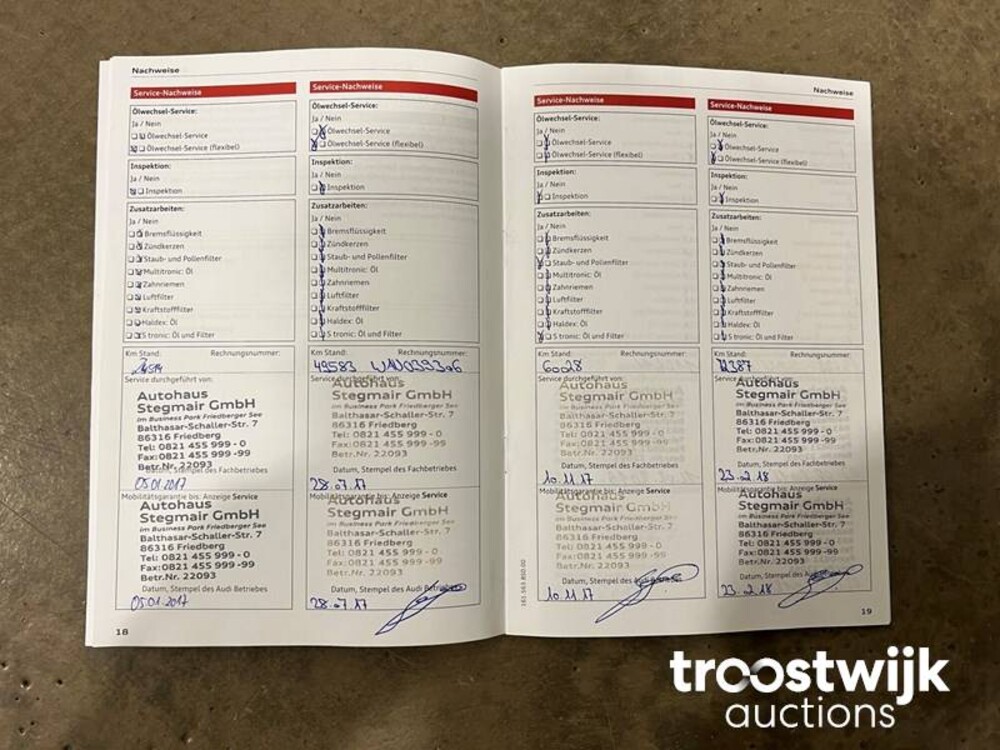 Nachweise
Service-Nachweise
Ölwechsel-Service:
Ja / Nein
Ölwechsel-Service
Ölwechsel-Service (flexibel)
Inspektion:
Ja / Nein
Inspektion
Zusatzarbeiten:
Ja / Nein
Bremsflüssigkeit
Zündkerzen
Staub- und Pollenfilter
Multitronic: Öl
Zahnriemen
Luftfilter
Kraftstofffilter
Haldex: Öl
S tronic: Öl und Filter
Km Stand: Rechnungsnummer:
Service durchgeführt von:
Autohaus
Stegmair GmbH
im Business Park Friedberger See
Balthasar-Schaller-Str. 7
86316 Friedberg
Tel: 0821 455 999 - 0
Fax: 0821 455 999 -99
Betr.Nr. 22093
Datum, Stempel des Fachbetriebes
05.01.2017
Mobilitätsgarantie bis: Anzeige Service
Autohaus
Stegmair GmbH
im Business Park Friedberger See
Balthasar-Schaller-Str. 7
86316 Friedberg
Tel: 0821 455 999 - 0
Fax: 0821 455 999 -99
Betr.Nr. 22093
Datum, Stempel des Audi Betriebes
05.01.2017
18
Service-Nachweise
Ölwechsel-Service:
Ja / Nein
Ölwechsel-Service
Ölwechsel-Service (flexibel)
Inspektion:
Ja / Nein
Inspektion
Zusatzarbeiten:
Ja / Nein
Bremsflüssigkeit
Zündkerzen
Staub- und Pollenfilter
Multitronic: Öl
Zahnriemen
Luftfilter
Kraftstofffilter
Haldex: Öl
S tronic: Öl und Filter
Km Stand: Rechnungsnummer:
49583
Service durchgeführt von:
Autohaus
Stegmair GmbH
im Business Park Friedberger See
Balthasar-Schaller-Str. 7
86316 Friedberg
Tel: 0821 455 999 - 0
Fax: 0821 455 999 -99
Betr.Nr. 22093
Datum, Stempel des Fachbetriebes
28.07.17
Mobilitätsgarantie bis: Anzeige Service
Autohaus
Stegmair GmbH
im Business Park Friedberger See
Balthasar-Schaller-Str. 7
86316 Friedberg
Tel: 0821 455 999 - 0
Fax: 0821 455 999 -99
Betr.Nr. 22093
Datum, Stempel des Audi Betriebes
28.07.17
Nachweise
Service-Nachweise
Ölwechsel-Service:
Ja / Nein
Ölwechsel-Service
Ölwechsel-Service (flexibel)
Inspektion:
Ja / Nein
Inspektion
Zusatzarbeiten:
Ja / Nein
Bremsflüssigkeit
Zündkerzen
Staub- und Pollenfilter
Multitronic: Öl
Zahnriemen
Luftfilter
Kraftstofffilter
Haldex: Öl
S tronic: Öl und Filter
Km Stand: Rechnungsnummer:
60028
Service durchgeführt von:
Autohaus
Stegmair GmbH
im Business Park Friedberger See
Balthasar-Schaller-Str. 7
86316 Friedberg
Tel: 0821 455 999 - 0
Fax: 0821 455 999 -99
Betr.Nr. 22093
Datum, Stempel des Fachbetriebes
10.11.17
Mobilitätsgarantie bis: Anzeige Service
Autohaus
Stegmair GmbH
im Business Park Friedberger See
Balthasar-Schaller-Str. 7
86316 Friedberg
Tel: 0821 455 999 - 0
Fax: 0821 455 999 -99
Betr.Nr. 22093
Datum, Stempel des Audi Betriebes
10.11.17
Service-Nachweise
Ölwechsel-Service:
Ja / Nein
Ölwechsel-Service
Ölwechsel-Service (flexibel)
Inspektion:
Ja / Nein
Inspektion
Zusatzarbeiten:
Ja / Nein
Bremsflüssigkeit
Zündkerzen
Staub- und Pollenfilter
Multitronic: Öl
Zahnriemen
Luftfilter
Kraftstofffilter
Haldex: Öl
S tronic: Öl und Filter
Km Stand: Rechnungsnummer:
72387
Service durchgeführt von:
Autohaus
Stegmair GmbH
im Business Park Friedberger See
Balthasar-Schaller-Str. 7
86316 Friedberg
Tel: 0821 455 999 - 0
Fax: 0821 455 999 -99
Betr.Nr. 22093
Datum, Stempel des Fachbetriebes
23.02.18
Mobilitätsgarantie bis: Anzeige Service
Autohaus
Stegmair GmbH
im Business Park Friedberger See
Balthasar-Schaller-Str. 7
86316 Friedberg
Tel: 0821 455 999 - 0
Fax: 0821 455 999 -99
Betr.Nr. 22093
Datum, Stempel des Audi Betriebes
23.2.18
19
troostwijk
auctions